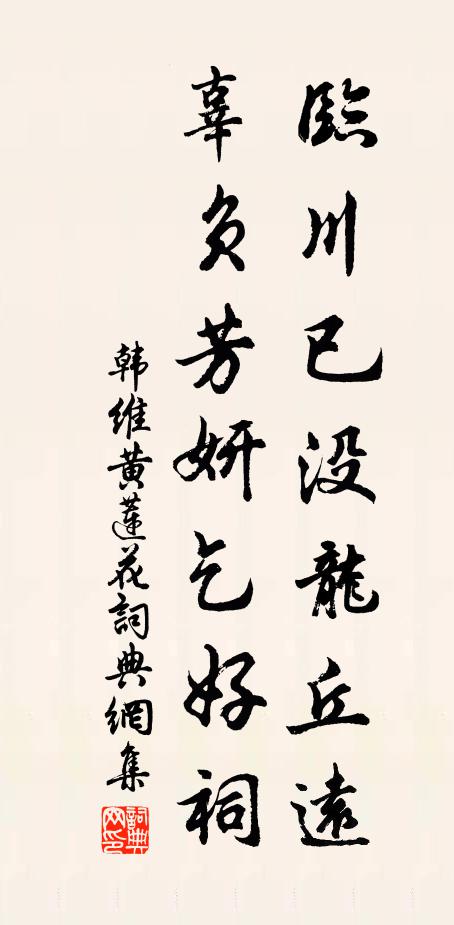 臨川已没龍丘遠
辜負芳妍乞好祠
韩維黄蓮花詞典網集
詞典